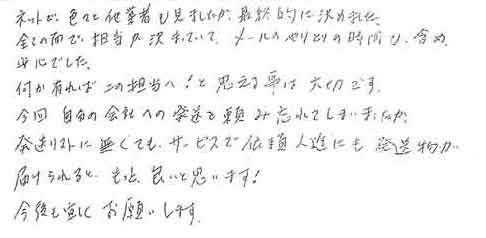 ネットで、色々と他業者も見ましたが、最終的に決めました。
全ての面で、担当が決まっていて、メールのやりとりの時間も、含め、
安心でした。
何か有れば この担当へ!と思える事は 大切です。
今回 自分の会社への発送を頼み忘れてしまいましたが、
発送リストに無くても、サービスで依頼人達にも 発送物が
届けられると、もっと、良いと思います!
今後も宜しく お願いします。